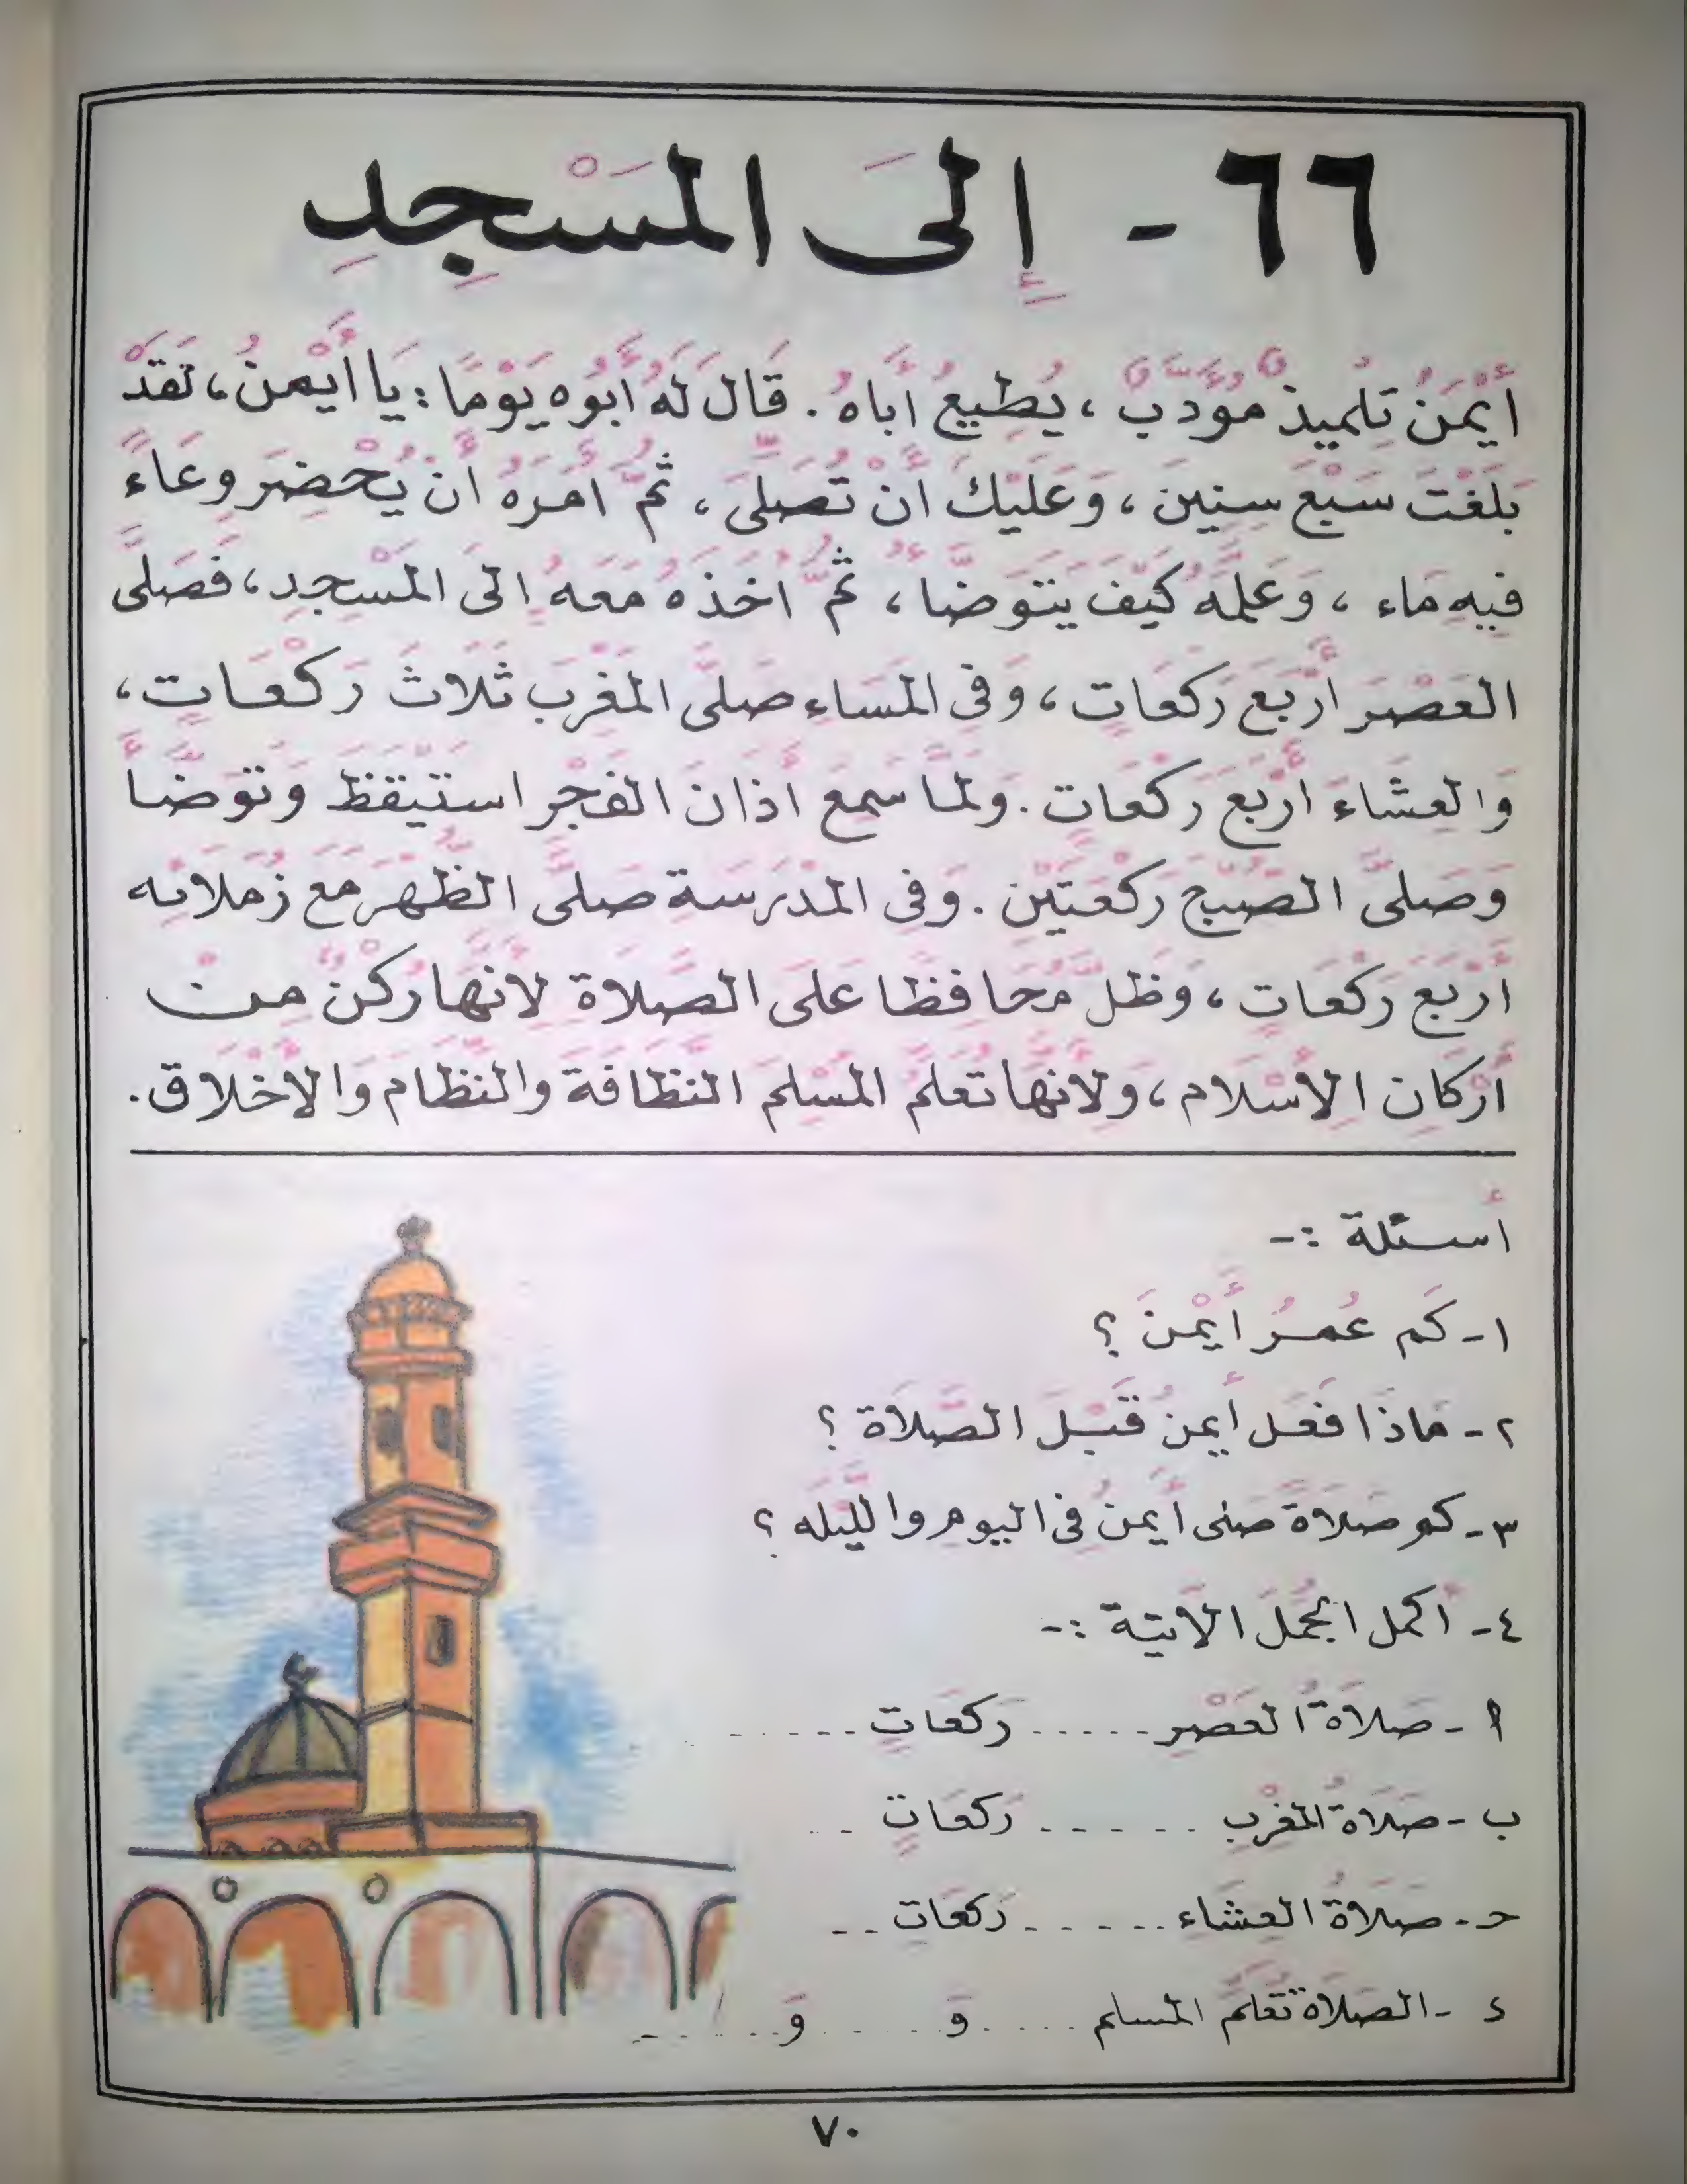 ٦٦ - إِلىَ المَسْجِدِ
أَيْمَنُ تِلْميذٌ مُؤَدَّبٌ ، يُطِيعُ أَباهُ . قَالَ لَهُ أَبُوه يَوْمًا : يَا أَيْمنُ ، لَقَدْ
بَلَغْتَ سَبْعَ سِنِينَ ، وَعَلَيْكَ أَنْ تُصَلِّىَ ، ثُمَّ أَمَرَهُ أَنْ يُحْضِرَ وِعَاءً
فيهِ مَاء ، وَعَلَّمَهُ كَيْفَ يَتَوَضَّأُ ، ثُمَّ أَخَذَهُ مَعَهُ إِلىَ المَسْجِدِ ، فَصَلَّى
العَصْرَ أَرْبَعَ رَكَعَاتٍ ، وَفىِ المَسَاءِ صَلَّى المَغْرِبَ ثَلاَثَ رَكْعَاتٍ ،
وَالعِشَاءَ أَرْبَعَ رَكَعَاتٍ . وَلمَّا سَمِعَ أَذَانَ الفَجْرِ استَيْقَظَ وَتَوَضَّأَ
وَصَلىَّ الصُّبْحَ رَكْعَتَيْنِ . وَفى المَدْرَسَةِ صَلَّى الظُّهْرَ مَعَ زُمَلائِه
أَرْبَعَ رَكْعَاتٍ ، وَظَلَّ مُحَافِظًا عَلىَ الصَّلاَةِ لأَنَّهَا رُكْنٌ مِنْ
أَرْكَانِ الإِسْلاَمِ ، وَلأَنَّهَا تُعَلِّمُ المُسْلِمَ النَّظَافَةَ والنِّظَامَ وَالأَخْلاَقَ .
أسئلة :-
١- كَم عُمرُ أَيْمَنَ ؟
٢- مَاذَا فَعَل أَيمنُ قَبْلَ الصَّلاَة ؟
٣- كم صَلاَةً صَلَّى أَيمنُ فىِ اليومِ والليَّله ؟
٤- أكمل الجُمَلَ الآتية :-
أ - صَلاَةُ العَصْرِ ...... رَكعَاتٍ ......
ب - صَلاَةُ المغْرِبِ ...... رَكعَاتٍ ..
حـ - صَلاَةُ العِشَاءِ ...... رَكعَاتٍ ..
د - الصَّلاَةُ تُعَلِّمُ المسلم ..... وَ ..... وَ .....
٧٠